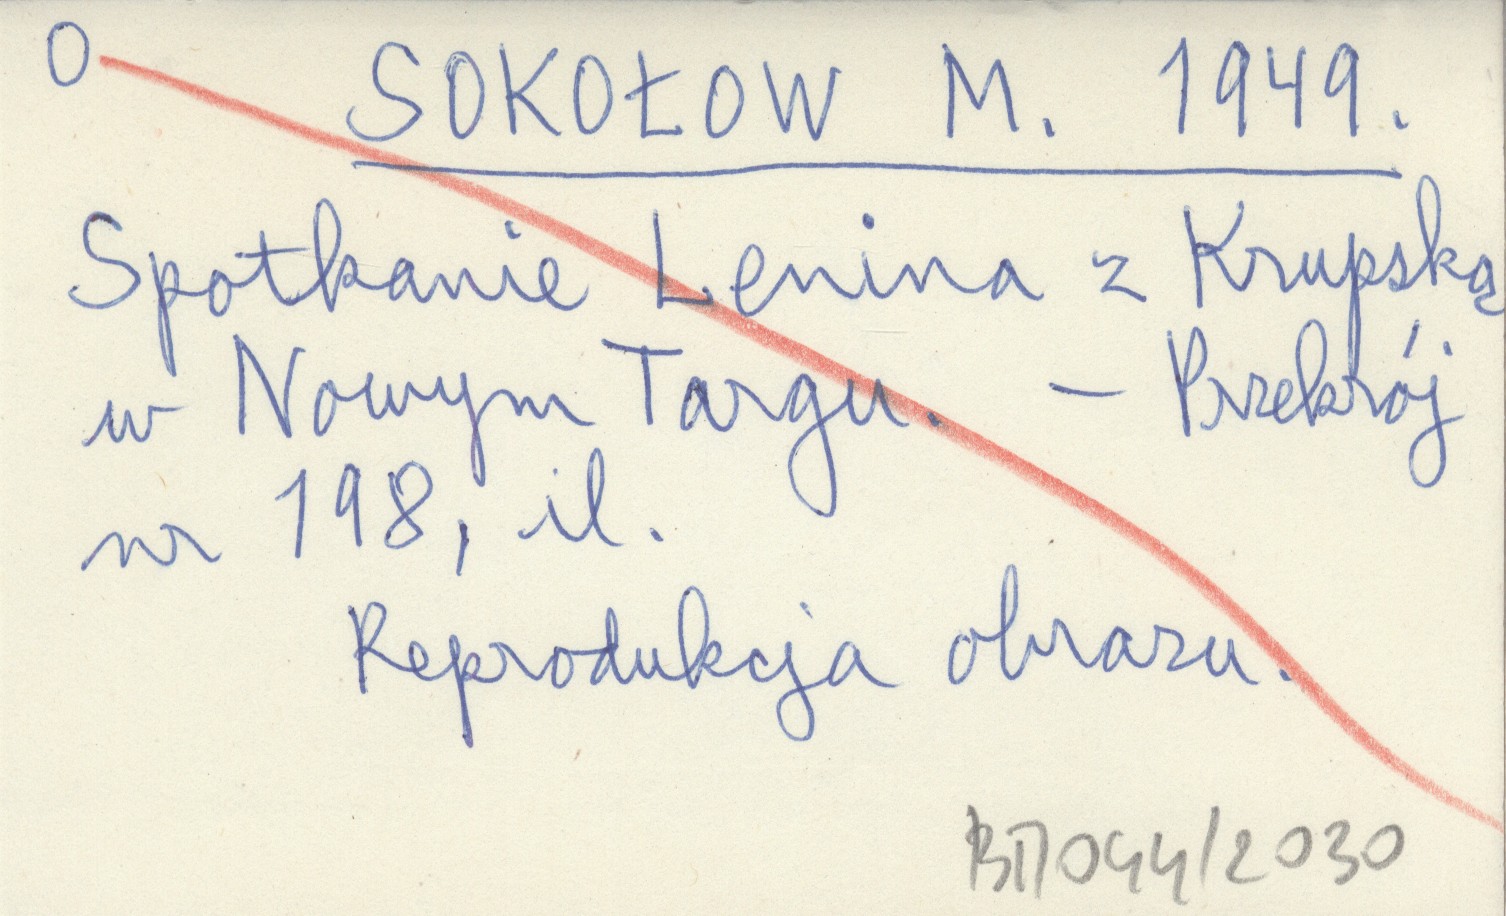 O SOKOŁOW M. 1949.
Spotkanie Lenina z Krupską
w Nowym Targu. – Przekrój
nr 198, il.
Reprodukcja obrazu.
/2030